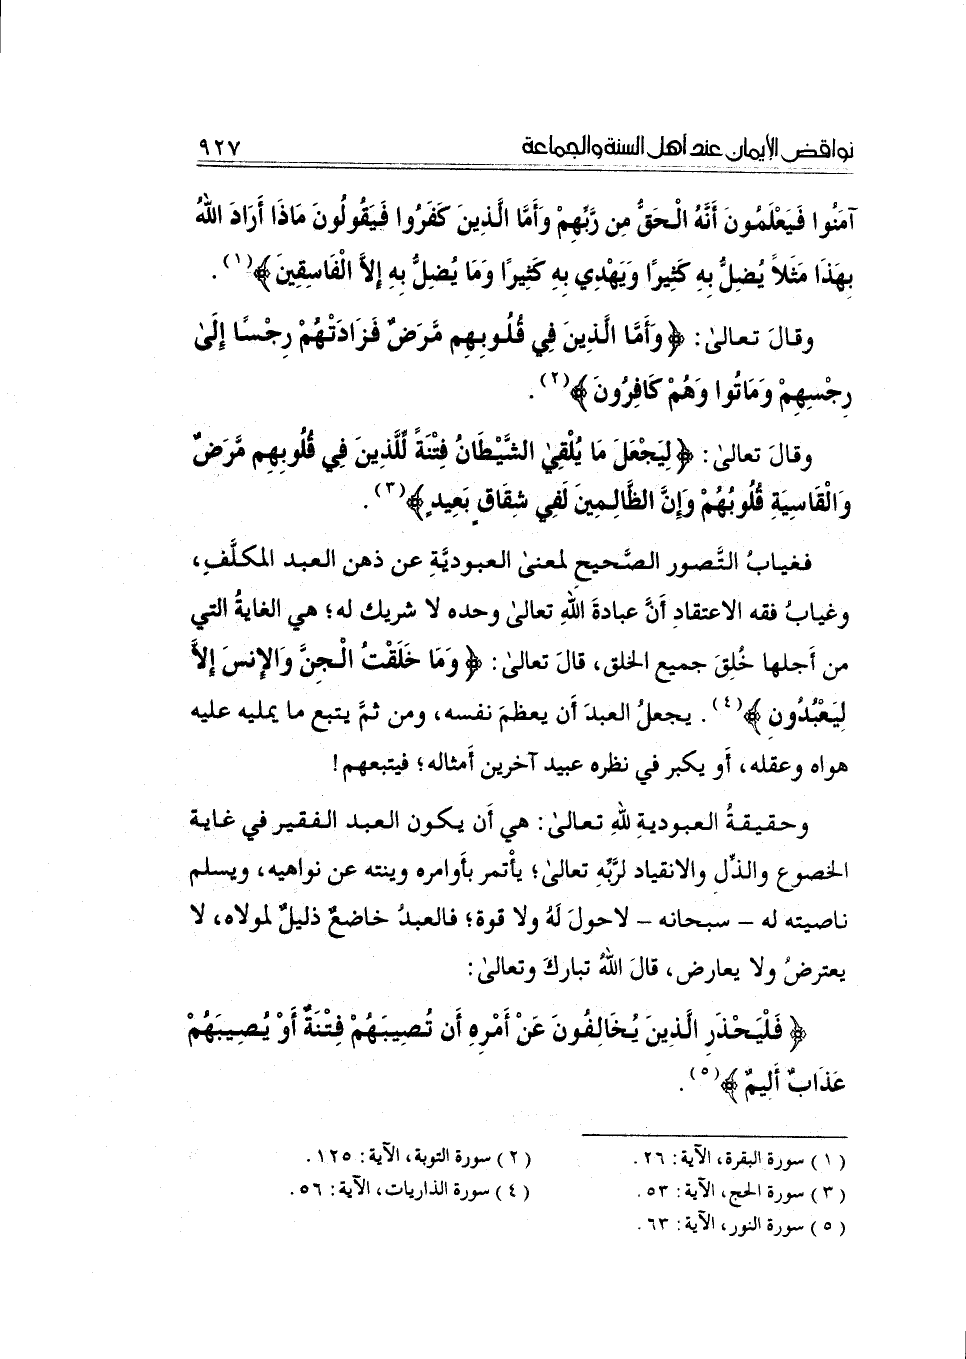 نواقض الإيمان عند أهل السنة والجماعة ٩٢٧
آمَنُوا فَيَعْلَمُونَ أَنَّهُ الْحَقُّ مِن رَّبِّهِمْ وَأَمَّا الَّذِينَ كَفَرُوا فَيَقُولُونَ مَاذَا أَرَادَ اللهُ
بِهَذَا مَثَلاً يُضِلُّ بِهِ كَثِيرًا وَيَهْدِي بِهِ كَثِيرًا وَمَا يُضِلُّ بِهِ إِلاَّ الْفَاسِقِينَ ﴾(١).
وقالَ تعالىٰ: ﴿ وَأَمَّا الَّذِينَ فِي قُلُوبِهِم مَّرَضٌ فَزَادَتْهُمْ رِجْسًا إِلَىٰ
رِجْسِهِمْ وَمَاتُوا وَهُمْ كَافِرُونَ ﴾(٢).
وقالَ تعالىٰ: ﴿ لِيَجْعَلَ مَا يُلْقِي الشَّيْطَانُ فِتْنَةً لِّلَّذِينَ فِي قُلُوبِهِم مَّرَضٌ
وَالْقَاسِيَةِ قُلُوبُهُمْ وَإِنَّ الظَّالِمِينَ لَفِي شِقَاقٍ بَعِيدٍ ﴾(٣).
فغيابُ التَّصور الصَّحيحِ لمعنىٰ العبوديَّةِ عن ذهن العبد المكلَّفِ،
وغيابُ فقه الاعتقادِ أنَّ عبادةَ اللهِ تعالىٰ وحده لا شريك له؛ هي الغايةُ التي
من أجلها خُلِقَ جميع الخلق، قالَ تعالىٰ: ﴿ وَمَا خَلَقْتُ الْجِنَّ وَالإِنسَ إِلاَّ
لِيَعْبُدُونِ ﴾(٤). يجعلُ العبدَ أن يعظمَ نفسه، ومن ثمَّ يتبع ما يمليه عليه
هواه وعقله، أو يكبر في نظره عبيد آخرين أمثاله؛ فيتبعهم!
وحقيقةُ العبوديةِ للهِ تعالىٰ: هي أن يكون العبد الفقير في غاية
الخصوع والذُّلِ والانقياد لرَّبِّهِ تعالىٰ؛ يأتمر بأوامره وينته عن نواهيه، ويسلم
ناصيته له – سبحانه – لاحولَ لَهُ ولا قوة؛ فالعبدُ خاضعٌ ذليلٌ لمولاه، لا
يعترضُ ولا يعارض، قالَ اللهُ تباركَ وتعالىٰ:
﴿ فَلْيَحْذَرِ الَّذِينَ يُخَالِفُونَ عَنْ أَمْرِهِ أَن تُصِيبَهُمْ فِتْنَةٌ أَوْ يُصِيبَهُمْ
عَذَابٌ أَلِيمٌ ﴾(٥).
(١) سورة البقرة، الآية: ٢٦. (٢) سورة التوبة، الآية: ١٢٥.
(٣) سورة الحج، الآية: ٥٣. (٤) سورة الذاريات، الآية: ٥٦.
(٥) سورة النور، الآية: ٦٣.